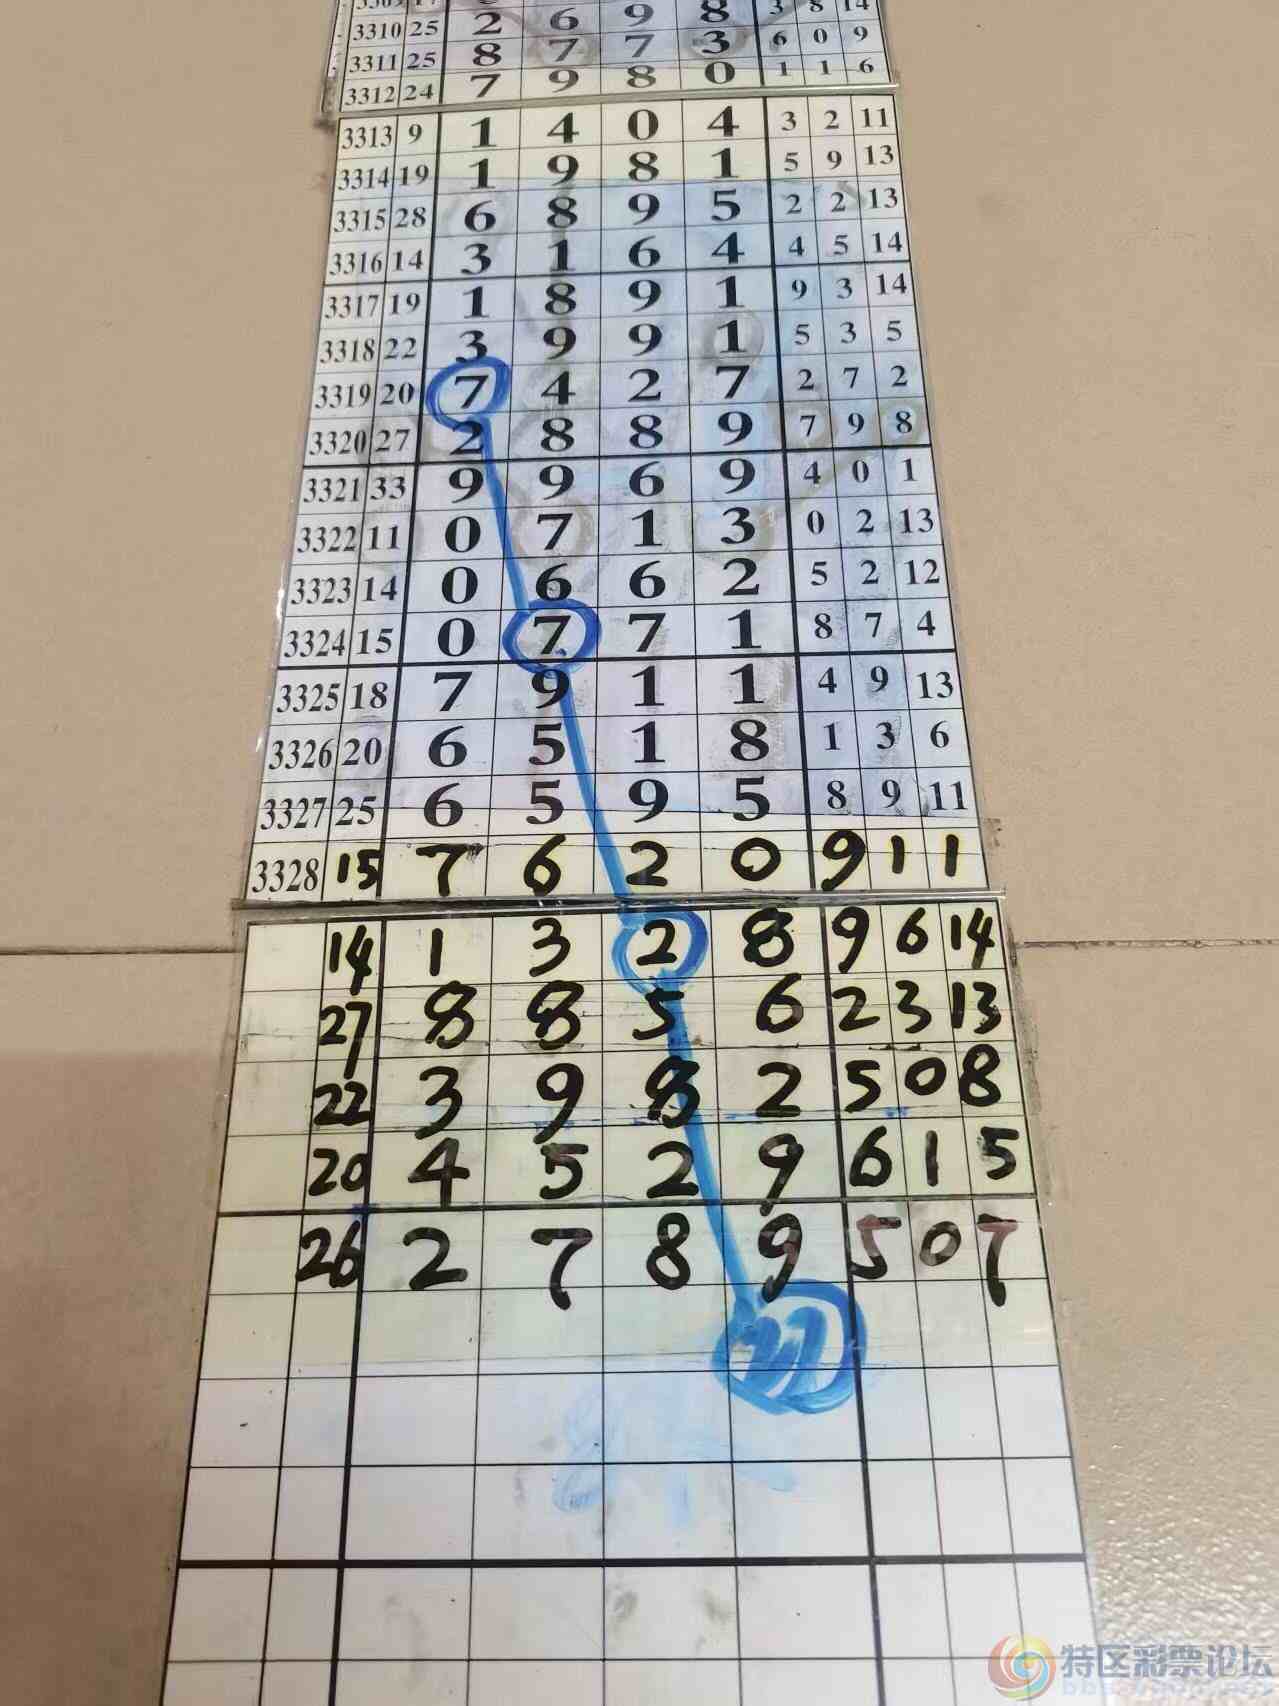 3310 25 2 6 9 8 3 8 14
3311 25 8 7 7 3 6 0 9
3312 24 7 9 8 0 1 1 6
3313 9 1 4 0 4 3 2 11
3314 19 1 9 8 1 5 9 13
3315 28 6 8 9 5 2 2 13
3316 14 3 1 6 4 4 5 14
3317 19 1 8 9 1 9 3 14
3318 22 3 9 9 1 5 3 5
3319 20 7 4 2 7 2 7 2
3320 27 2 8 8 9 7 9 8
3321 33 9 9 6 9 4 0 1
3322 11 0 7 1 3 0 2 13
3323 14 0 6 6 2 5 2 12
3324 15 0 7 7 1 8 7 4
3325 18 7 9 1 1 4 9 13
3326 20 6 5 1 8 1 3 6
3327 25 6 5 9 5 8 9 11
3328 15 7 6 2 0 9 1 1
14 1 3 2 8 9 6 14
27 8 8 5 6 2 3 13
22 3 9 8 2 5 0 8
20 4 5 2 9 6 1 5
26 2 7 8 9 5 0 7
特区彩票论坛